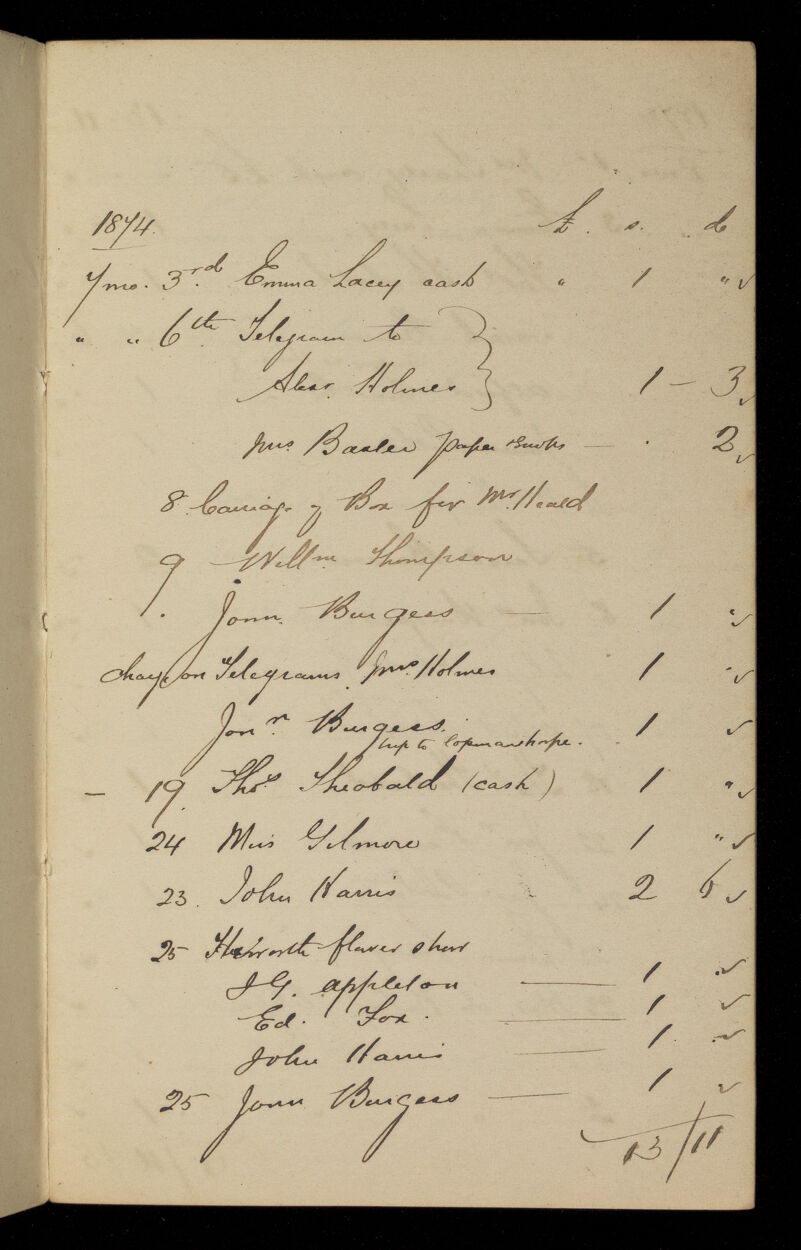 1874. £. s. d
7mo. 3rd. Emma Lacey cash " 1 "
" " 6th Telegram to
Alexr Holmes 1 – 3
Mrs Baxter paper — . 2
8. Carriage of Box for Mr. Heald
9 Willm Thompson
. Jonn. Burgess — 1 "
charge on Telegrams Mrs. Holmes 1 "
Jonn. Burgess. 1
trip to Copmanthorpe.
– 19. Thos Theobald (cash) 1 "
24 Miss Gilmore 1 "
23. John Harris 2 6
25 Heworth flower show
J G. Appleton — 1
Ed. Fox. — 1
John Harris — 1
25 Jonn Burgess — 1
13/11